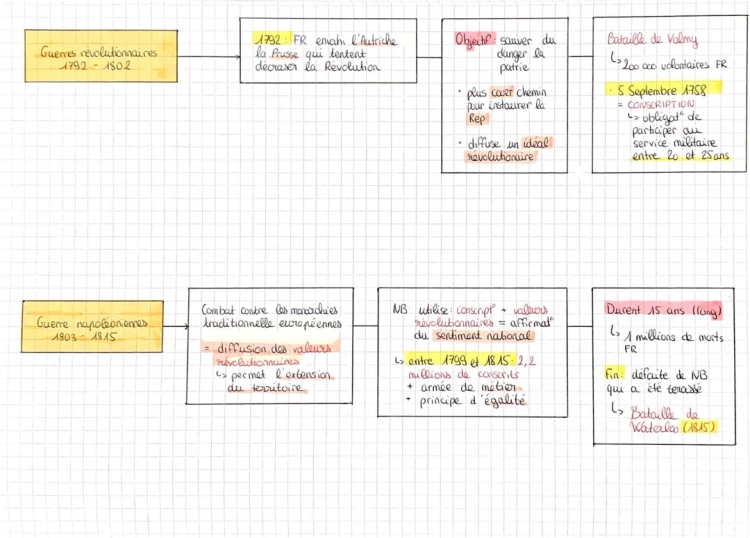 Guerres révolutionnaires
1792 - 1802
1792: FR envahi l'Autriche
la Prusse qui tentent
d'écraser la Révolution
Objectif: sauver du
danger la
patrie
• plus court chemin
pour instaurer la
Rep
• diffuse un idéal
révolutionaire
Bataille de Valmy
↳ 200 000 volontaires FR
• 5 Septembre 1758
= CONSCRIPTION
↳ obligat° de
participer au
service militaire
entre 20 et 25 ans
Guerre napoléoniennes
1803 - 1815
Combat contre les monarchies
traditionnelle européennes
= diffusion des valeurs
révolutionnaires
↳ permet l'extension
du territoire
NB utilise: conscript° + valeurs
révolutionnaires = affirmat°
du sentiment national
↳ entre 1799 et 1815: 2,2
millions de conscrits
+ armée de métier
+ principe d'égalité
Durent 15 ans (long)
↳ 1 millions de morts
FR
Fin: défaite de NB
qui a été terassé
↳ Bataille de
Waterloo (1815)